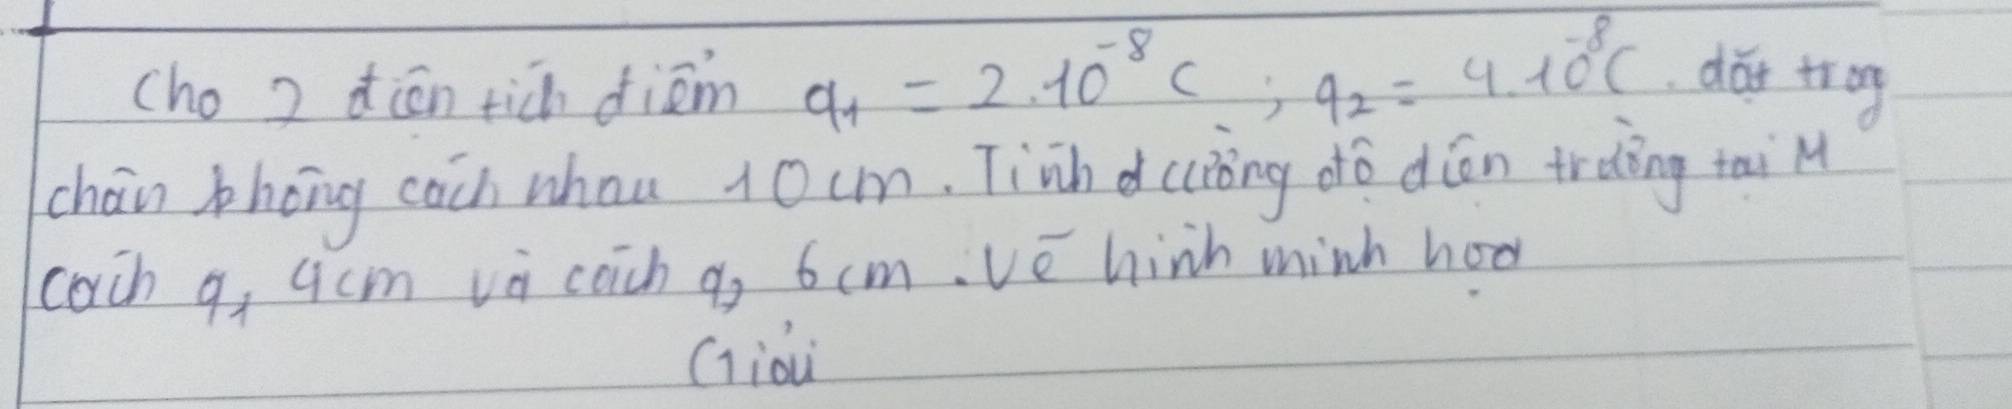 Cho 2 điện tích điểm q₁ = 2.10⁻⁸ C ; q₂ = 4.10⁻⁸C. đặt trong
chân không cách nhau 10 cm. Tính cường độ điện trường tại M
cách q₁ 4cm và cách q₂ 6cm. Vẽ hình minh hoạ
Giải